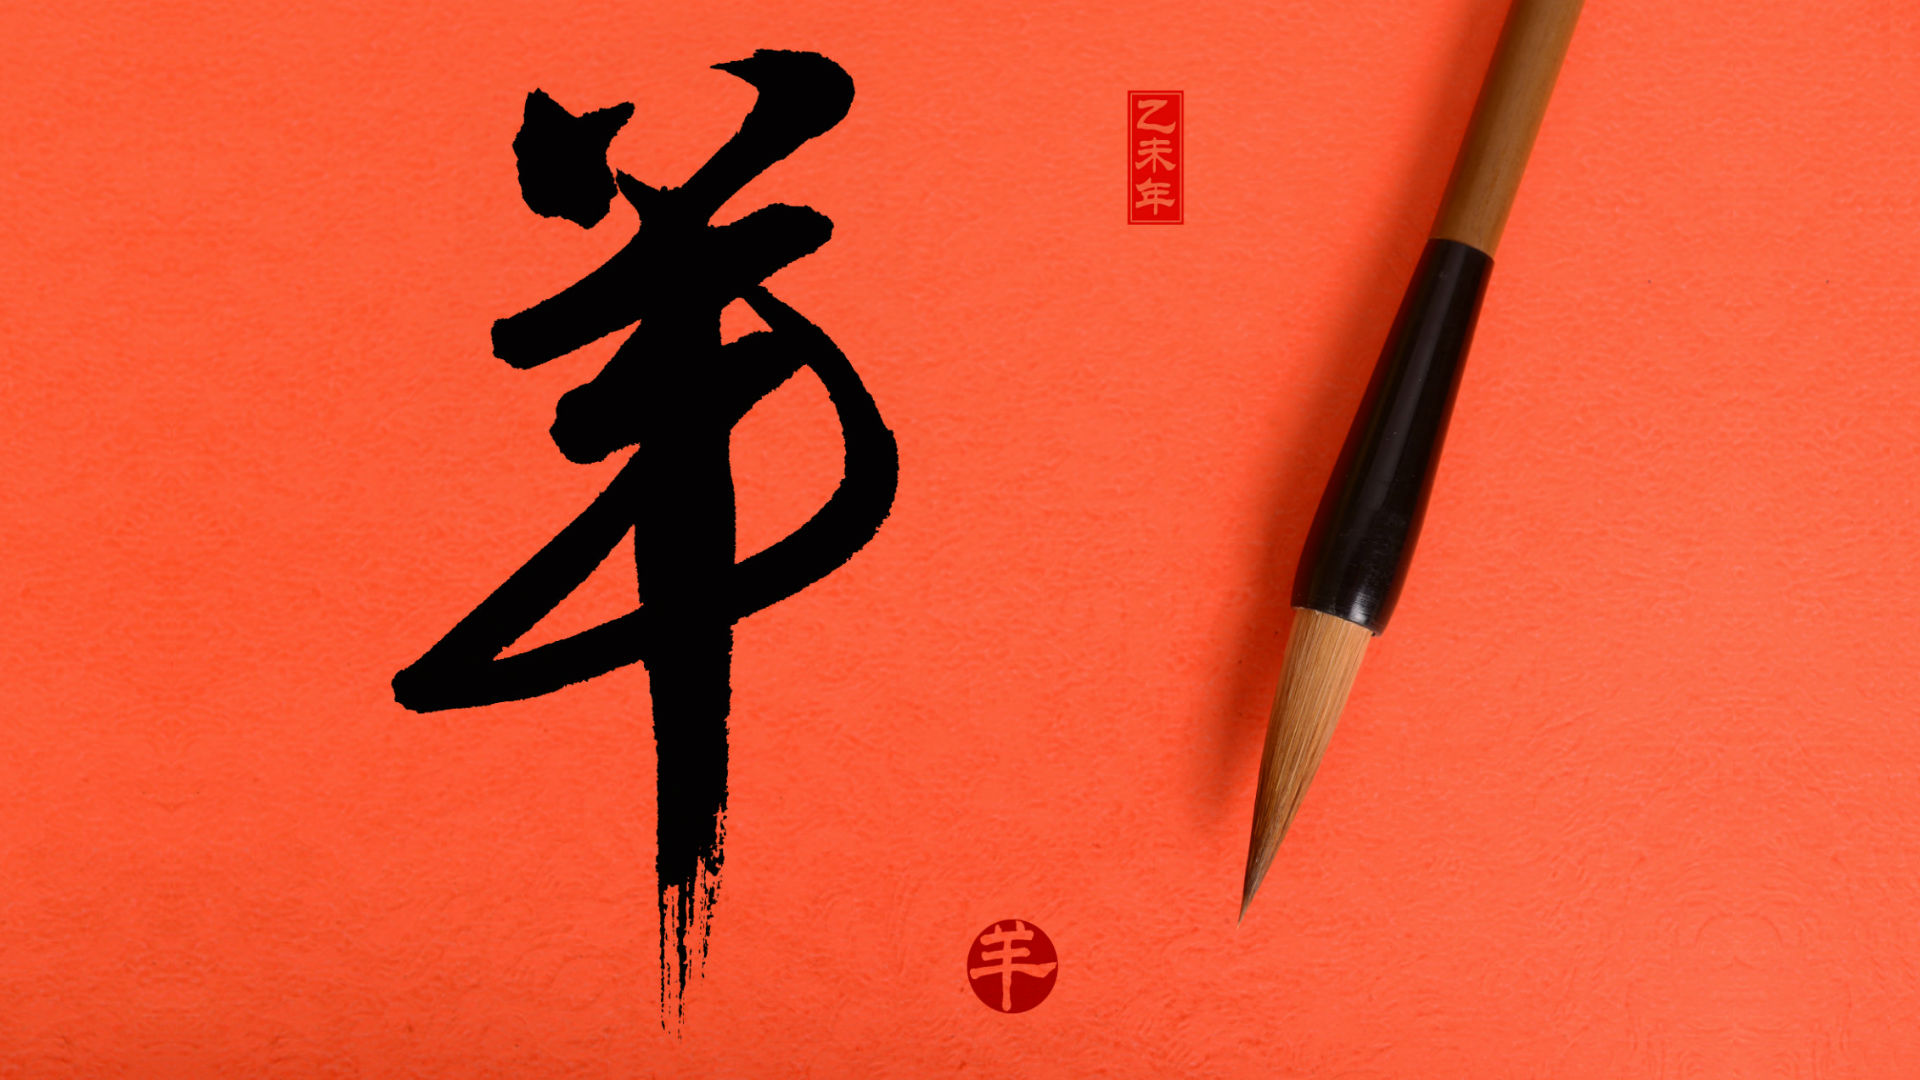 羊
乙未年
羊